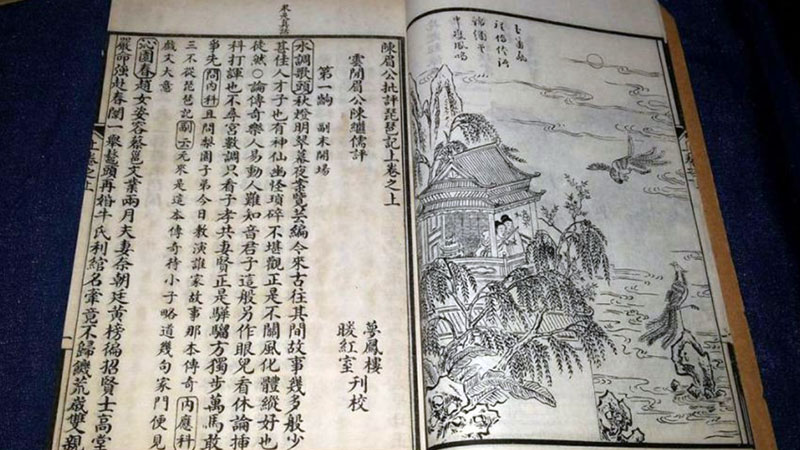 陳眉公批評琵琶記上卷之上
雲間眉公陳繼儒評
夢鳳樓
暖紅室
刊校
第一齣 副末開場
水調歌頭秋燈明翠幕夜案覽芸編今來古往其間故事幾多般少
甚佳人才子也有神仙幽怪瑣碎不堪觀正是不關風化體縱好也
徒然○論傳奇樂人易動人難知音君子這般另作眼兒看休論插
科打諢也不尋宮數調只看子孝共妻賢正是驊騮方獨步萬馬敢
爭先問內科且問梨園子弟今日教演誰家故事那本傳奇內應科
三不從琵琶記副云元來是這本傳奇待小子略道幾句家門便見
戲文大意
沁園春趙女姿容蔡邕文業兩月夫妻奈朝廷黃榜徧招賢士高堂
嚴命强赴春闈一舉鰲頭再婚牛氏利綰名牽竟不歸饑荒歲雙親